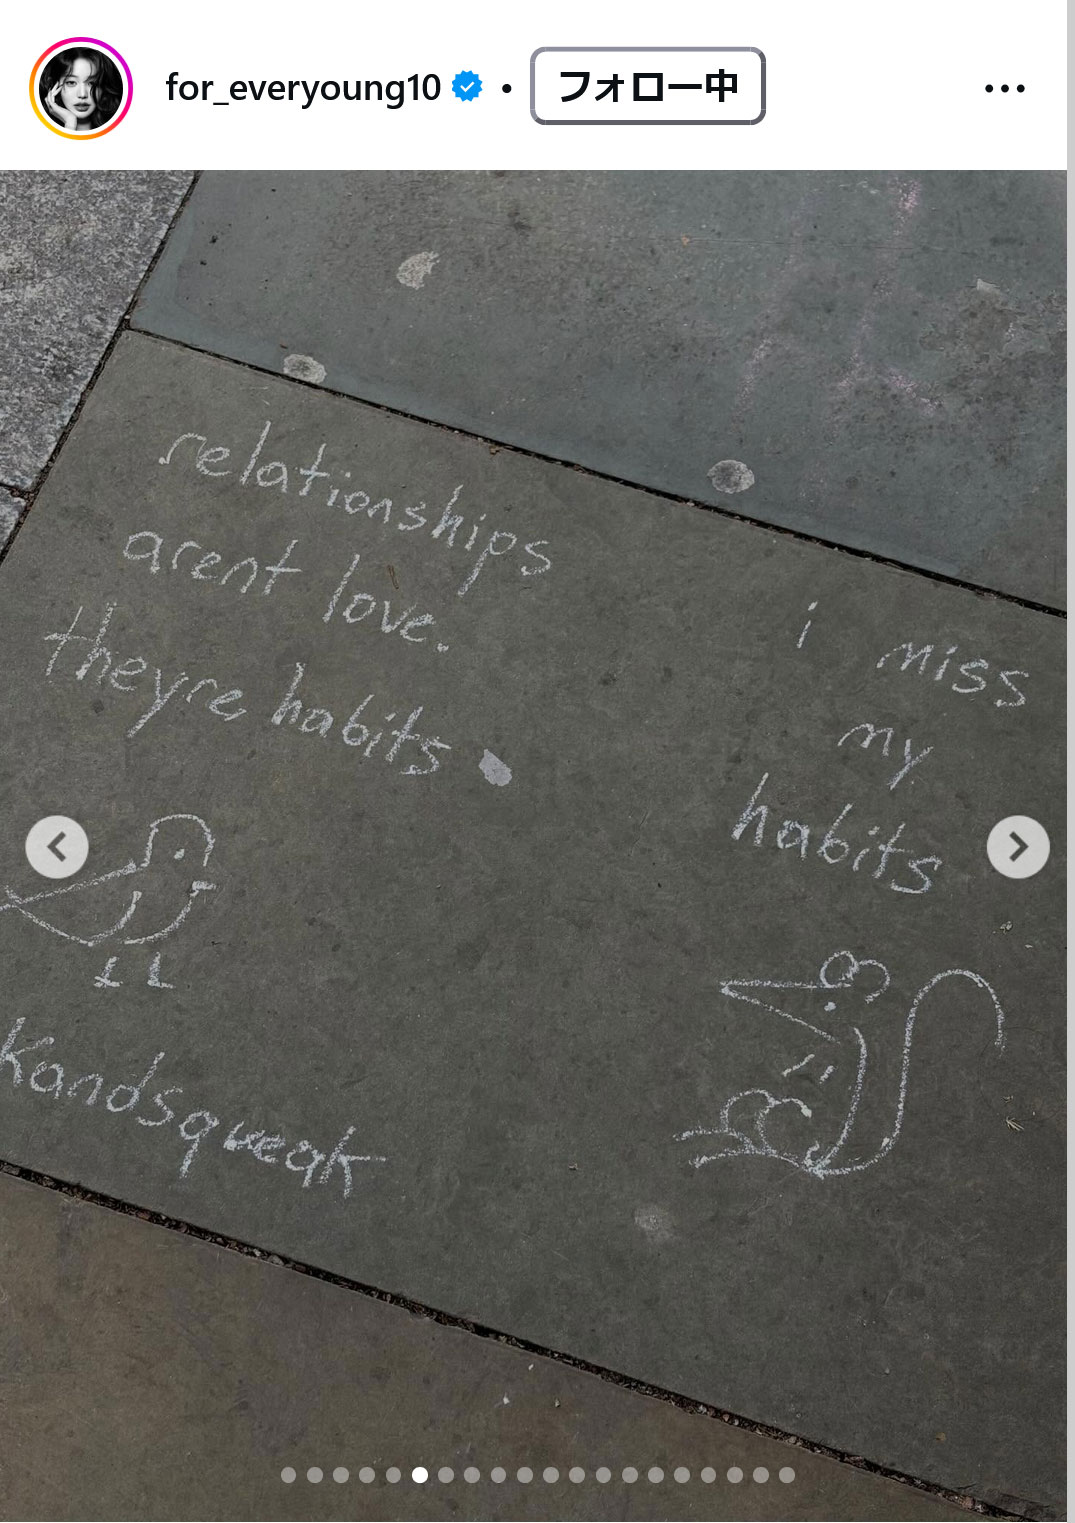 for_everyoung10 • フォロー中
relationships
arent love.
theyre habits
i miss
my
habits
Kandsqueak